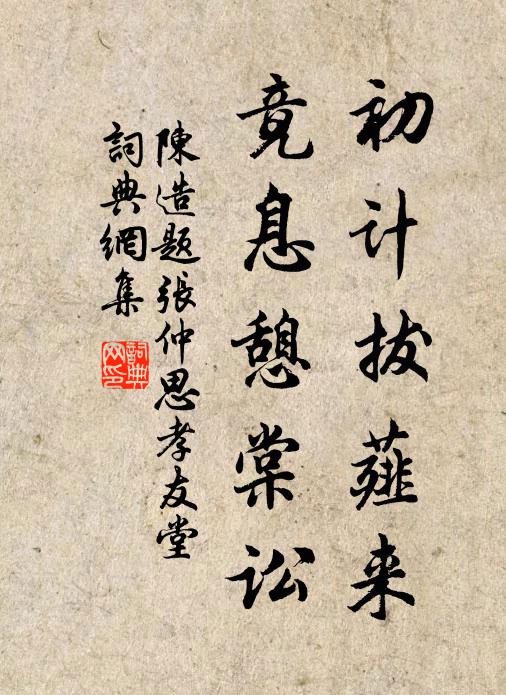 初计拔薤来
竟息憩棠讼
陳造題張仲思孝友堂
詞典網集
詞典网印